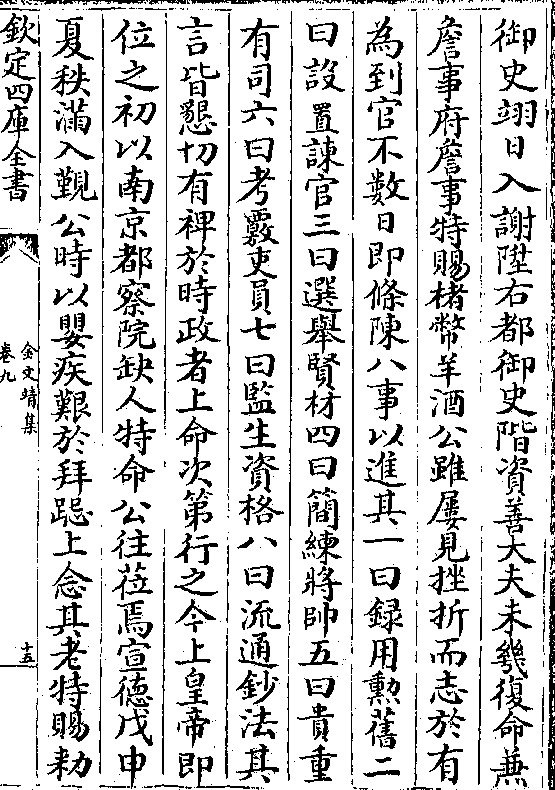 御史翊日入謝陞右都御史階資善大夫未幾復命兼
詹事府詹事特賜楮幣羊酒公雖屢見挫折而志於有
為到官不數日即條陳八事以進其一曰録用勲舊二
曰設置諫官三曰選舉賢材四曰簡練將帥五曰貴重
有司六曰考覈吏員七曰監生資格八曰流通鈔法其
言皆懇切有裨於時政者上命次第行之今上皇帝即
位之初以南京都察院缺人特命公往莅焉宣徳戊申
夏秩滿入覲公時以嬰疾艱於拜跽上念其老特賜勑
欽定四庫全書
金文靖集
卷九
十五